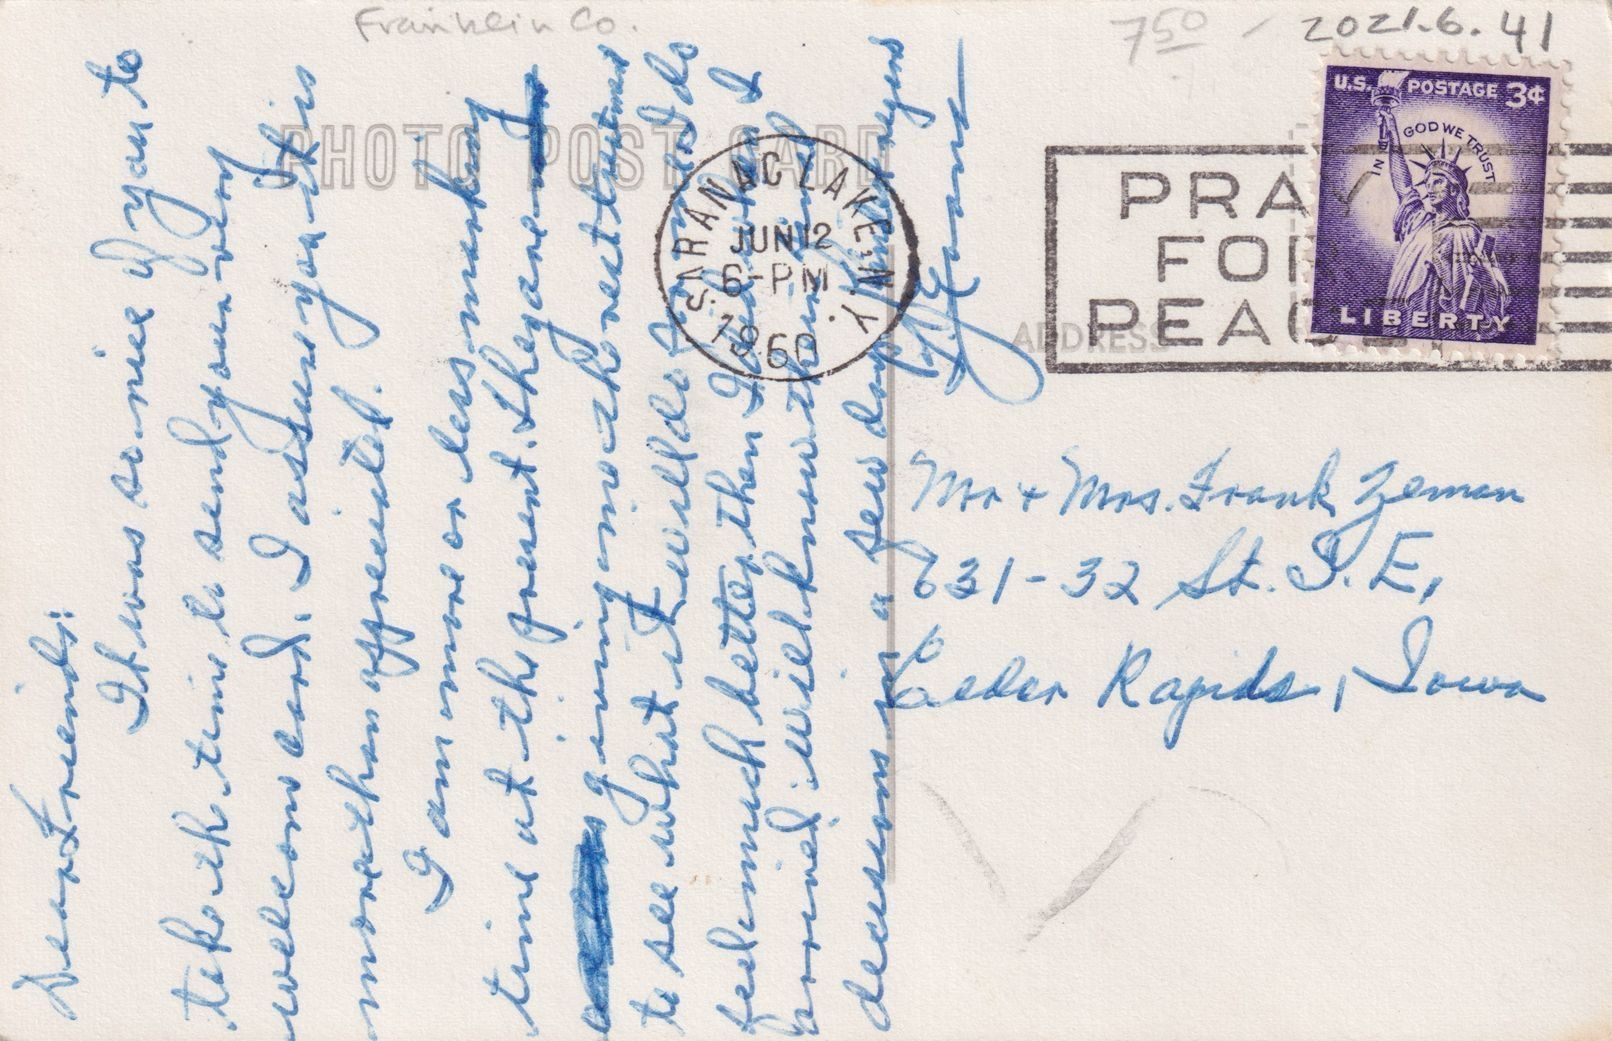 Franklin Co.
7 50 -
2021.6.41
PHOTO POST CARD
U.S. POSTAGE 3¢
IN GOD WE TRUST
LIBERTY
SARANAC LAKE N.Y.
JUN 12
6-PM
1960
PRAY
FOR
PEACE
ADDRESS
Dear Friends:
It was so nice of you to
take the time to send your very
welcome card. I assure you it is
more than appreciated.
I am more or less marking
time at the present. They are
giving me the rest treatment
to see what it will do for me. I do
feel much better then I did when I
arrived. will know the final
decision in a few days.
Mr & Mrs. Frank Zeman
631-32 St. S.E.,
Cedar Rapids, Iowa